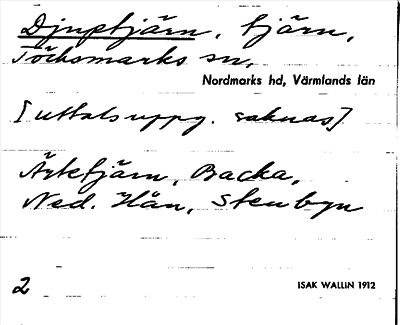 Djuptjärn, tjärn,
Töcksmarks sn.
Nordmarks hd, Värmlands län
[uttalsuppg. saknas].
Ärtetjärn, Backa,
Ned. Hän, Stenbyn
2
ISAK WALLIN 1912